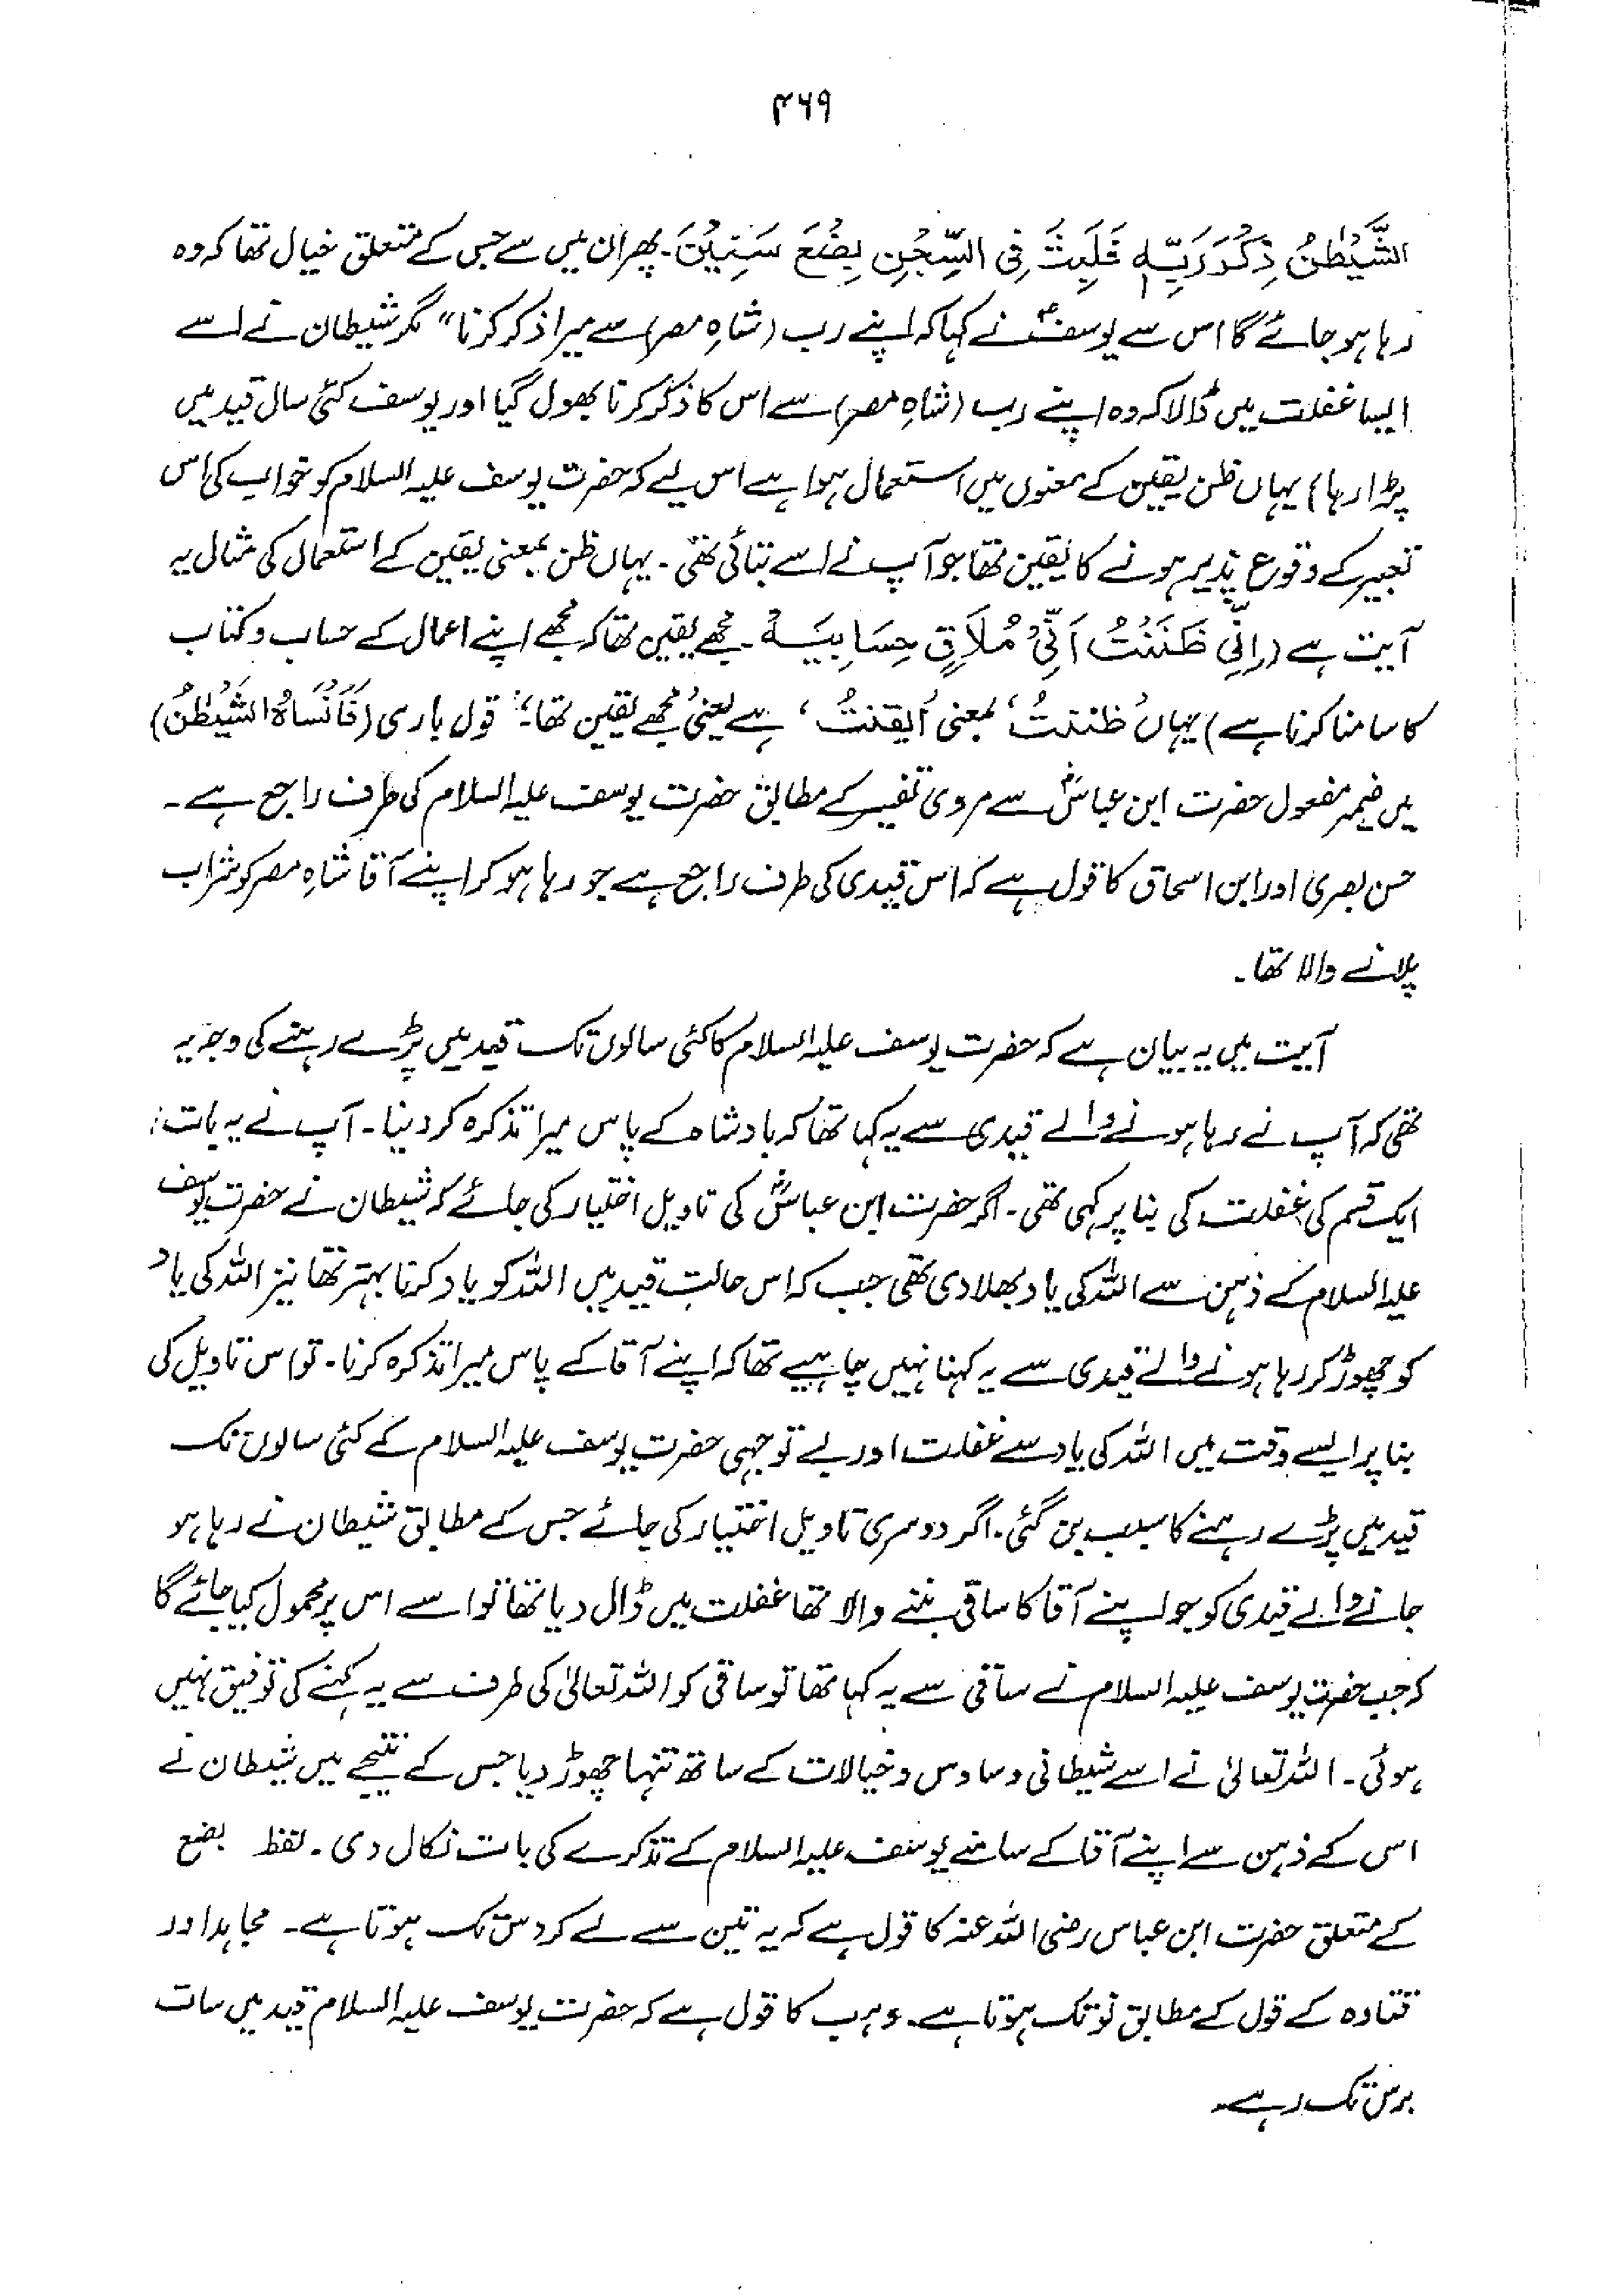 ۴۶۹
الشَّيْطٰنُ ذِكْرَ رَبِّهٖ فَلَبِثَ فِی السِّجْنِ بِضْعَ سِنِیْنَ۔ پھر ان میں سے جس کے متعلق خیال تھا کہ وہ
رہا ہو جائے گا اس سے یوسفؑ نے کہا کہ اپنے رب (شاہِ مصر) سے میرا ذکر کرنا" مگر شیطان نے اسے
ایسا غفلت میں ڈالا کہ وہ اپنے رب (شاہِ مصر) سے اس کا ذکر کرنا بھول گیا اور یوسف کئی سال قید میں
پڑا رہا) یہاں ظن یقین کے معنوں میں استعمال ہوا ہے اس لیے کہ حضرت یوسف علیہ السلام کو خواب کی اس
تعبیر کے وقوع پذیر ہونے کا یقین تھا جو آپ نے اسے بتائی تھی۔ یہاں ظن بمعنی یقین کے استعمال کی مثال یہ
آیت ہے (اِنِّیْ ظَنَنْتُ اَنِّیْ مُلَاقٍ حِسَابِیَہْ۔ مجھے یقین تھا کہ مجھے اپنے اعمال کے حساب و کتاب
کا سامنا کرنا ہے) یہاں 'ظننتُ' بمعنی 'اَیقنتُ' ہے یعنی 'مجھے یقین تھا'۔ قول باری (فَاَنْسَاهُ الشَّيْطٰنُ)
میں ضمیر مفعول حضرت ابن عباسؓ سے مروی تفسیر کے مطابق حضرت یوسف علیہ السلام کی طرف راجع ہے۔
حسن بصری اور ابن اسحاق کا قول ہے کہ اس قیدی کی طرف راجع ہے جو رہا ہو کر اپنے آقا شاہِ مصر کو شراب
پلانے والا تھا۔
آیت میں یہ بیان ہے کہ حضرت یوسف علیہ السلام کا کئی سالوں تک قید میں پڑے رہنے کی وجہ یہ
تھی کہ آپ نے رہا ہونے والے قیدی سے یہ کہا تھا کہ بادشاہ کے پاس میرا تذکرہ کر دینا۔ آپ نے یہ بات
ایک قسم کی غفلت کی بنا پر کہی تھی۔ اگر حضرت ابن عباسؓ کی تاویل اختیار کی جائے کہ شیطان نے حضرت یوسف
علیہ السلام کے ذہن سے اللہ کی یاد بھلا دی تھی جب کہ اس حالتِ قید میں اللہ کو یاد کرنا بہتر تھا نیز اللہ کی یاد
کو چھوڑ کر رہا ہونے والے قیدی سے یہ کہنا نہیں چاہیے تھا کہ اپنے آقا کے پاس میرا تذکرہ کرنا۔ تو اس تاویل کی
بنا پر ایسے وقت میں اللہ کی یاد سے غفلت اور بے توجہی حضرت یوسف علیہ السلام کے کئی سالوں تک
قید میں پڑے رہنے کا سبب بن گئی۔ اگر دوسری تاویل اختیار کی جائے جس کے مطابق شیطان نے رہا ہو
جانے والے قیدی کو جو اپنے آقا کا ساقی بننے والا تھا غفلت میں ڈال دیا تھا تو اسے اس پر محمول کیا جائے گا
کہ جب حضرت یوسف علیہ السلام نے ساقی سے یہ کہا تھا تو ساقی کو اللہ تعالیٰ کی طرف سے یہ کہنے کی توفیق نہیں
ہوئی۔ اللہ تعالیٰ نے اسے شیطانی وساوس و خیالات کے ساتھ تنہا چھوڑ دیا جس کے نتیجے میں شیطان نے
اس کے ذہن سے اپنے آقا کے سامنے یوسف علیہ السلام کے تذکرے کی بات نکال دی۔ لفظ بضع
کے متعلق حضرت ابن عباس رضی اللہ عنہ کا قول ہے کہ یہ تین سے لے کر دس تک ہوتا ہے۔ مجاہد اور
قتادہ کے قول کے مطابق نو تک ہوتا ہے۔ وہب کا قول ہے کہ حضرت یوسف علیہ السلام قید میں سات
برس تک رہے۔